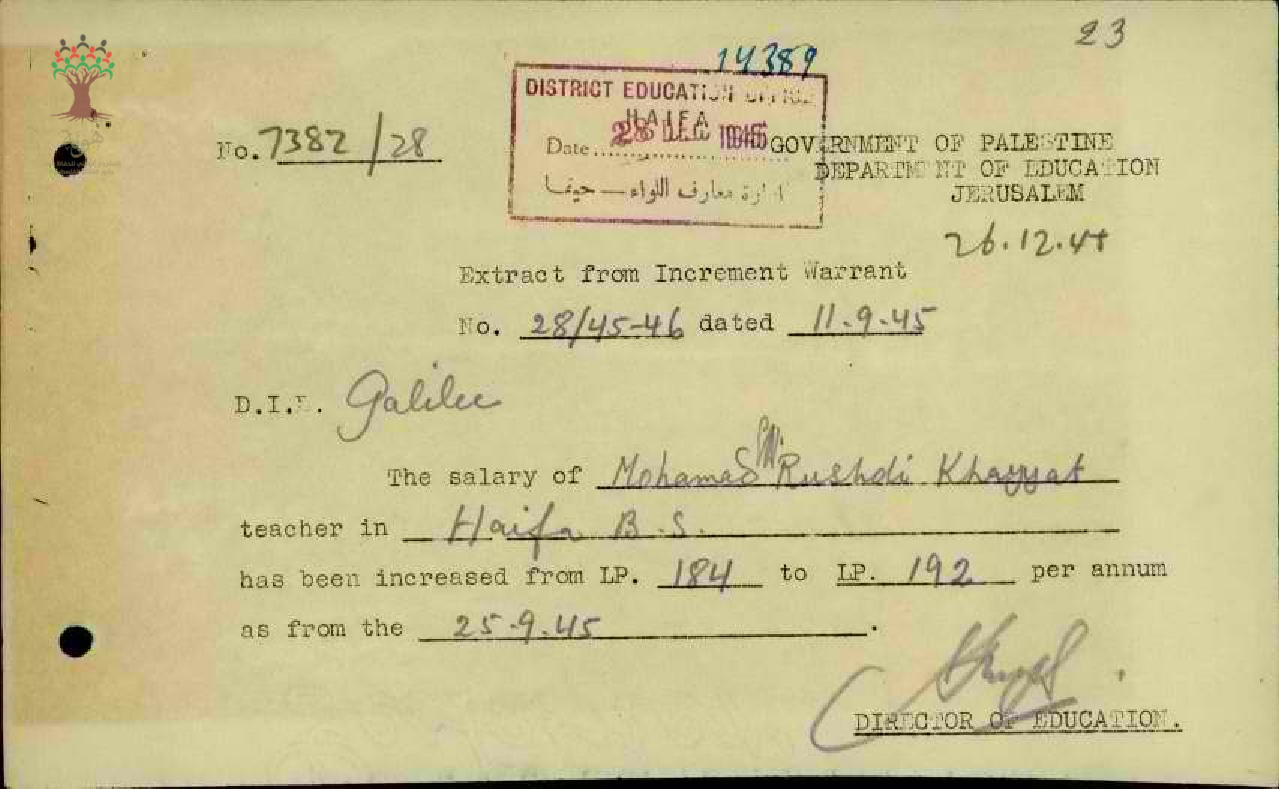 23
14389
DISTRICT EDUCATION OFFICE
HAIFA
Date 28 DEC 1945
ادارة معارف اللواء — حيفا
No. 7382/28
GOVERNMENT OF PALESTINE
DEPARTMENT OF EDUCATION
JERUSALEM
26.12.44
Extract from Increment Warrant
No. 28/45-46 dated 11.9.45
D.I.E. Galilee
The salary of Mohamad Rushdi Khayyat
teacher in Haifa B.S.
has been increased from LP. 184 to LP. 192 per annum
as from the 25.9.45.
DIRECTOR OF EDUCATION.